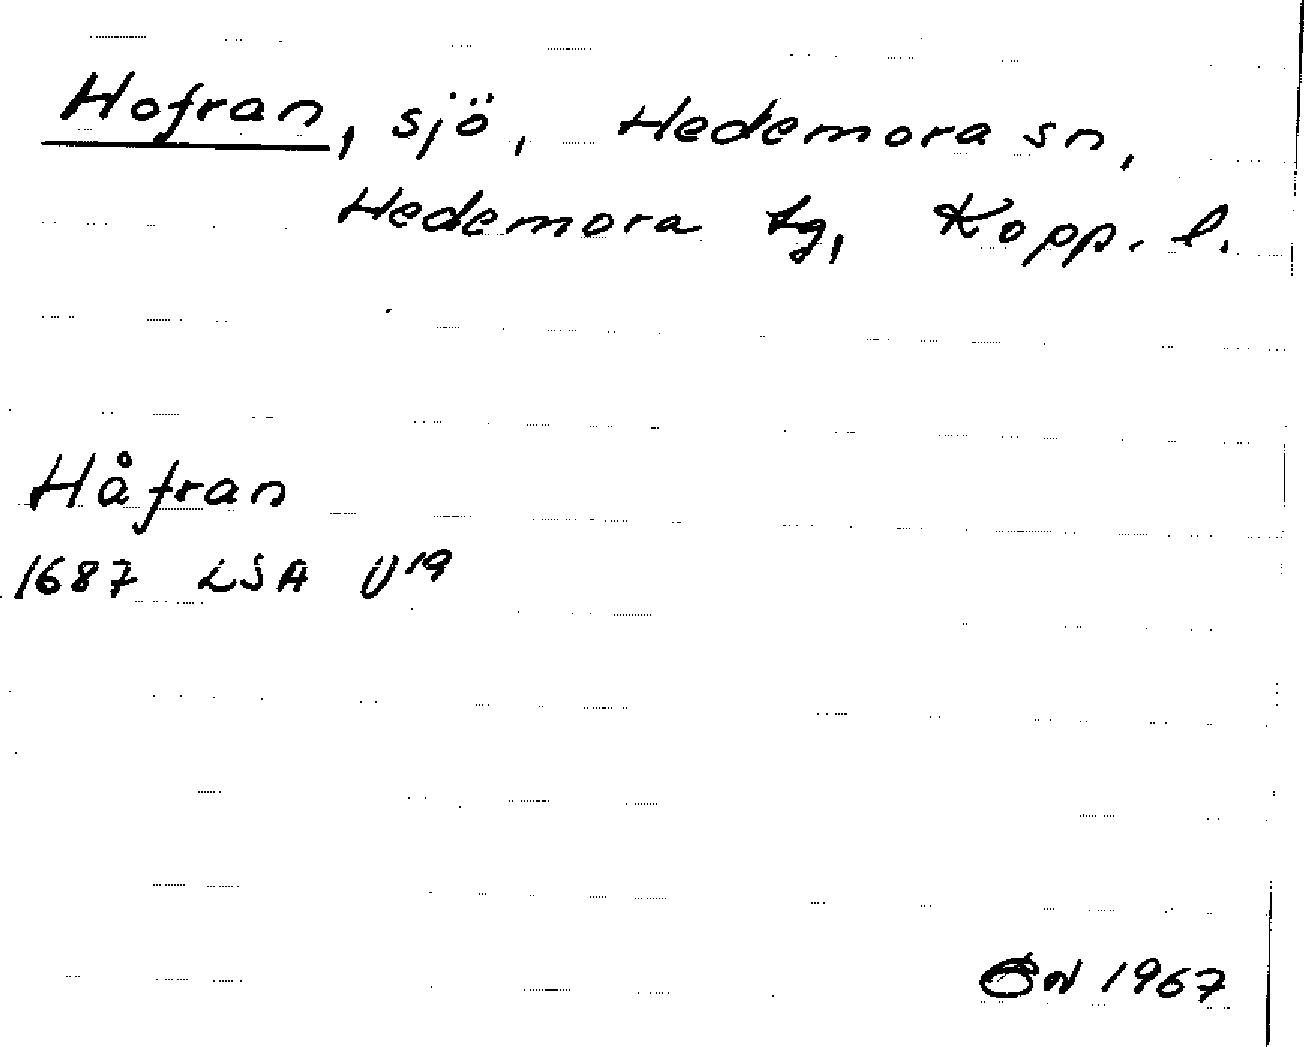 Hofran, sjö, Hedemora sn,
Hedemora tg, Kopp. l.
Håfran
1687 LSA U19
1967